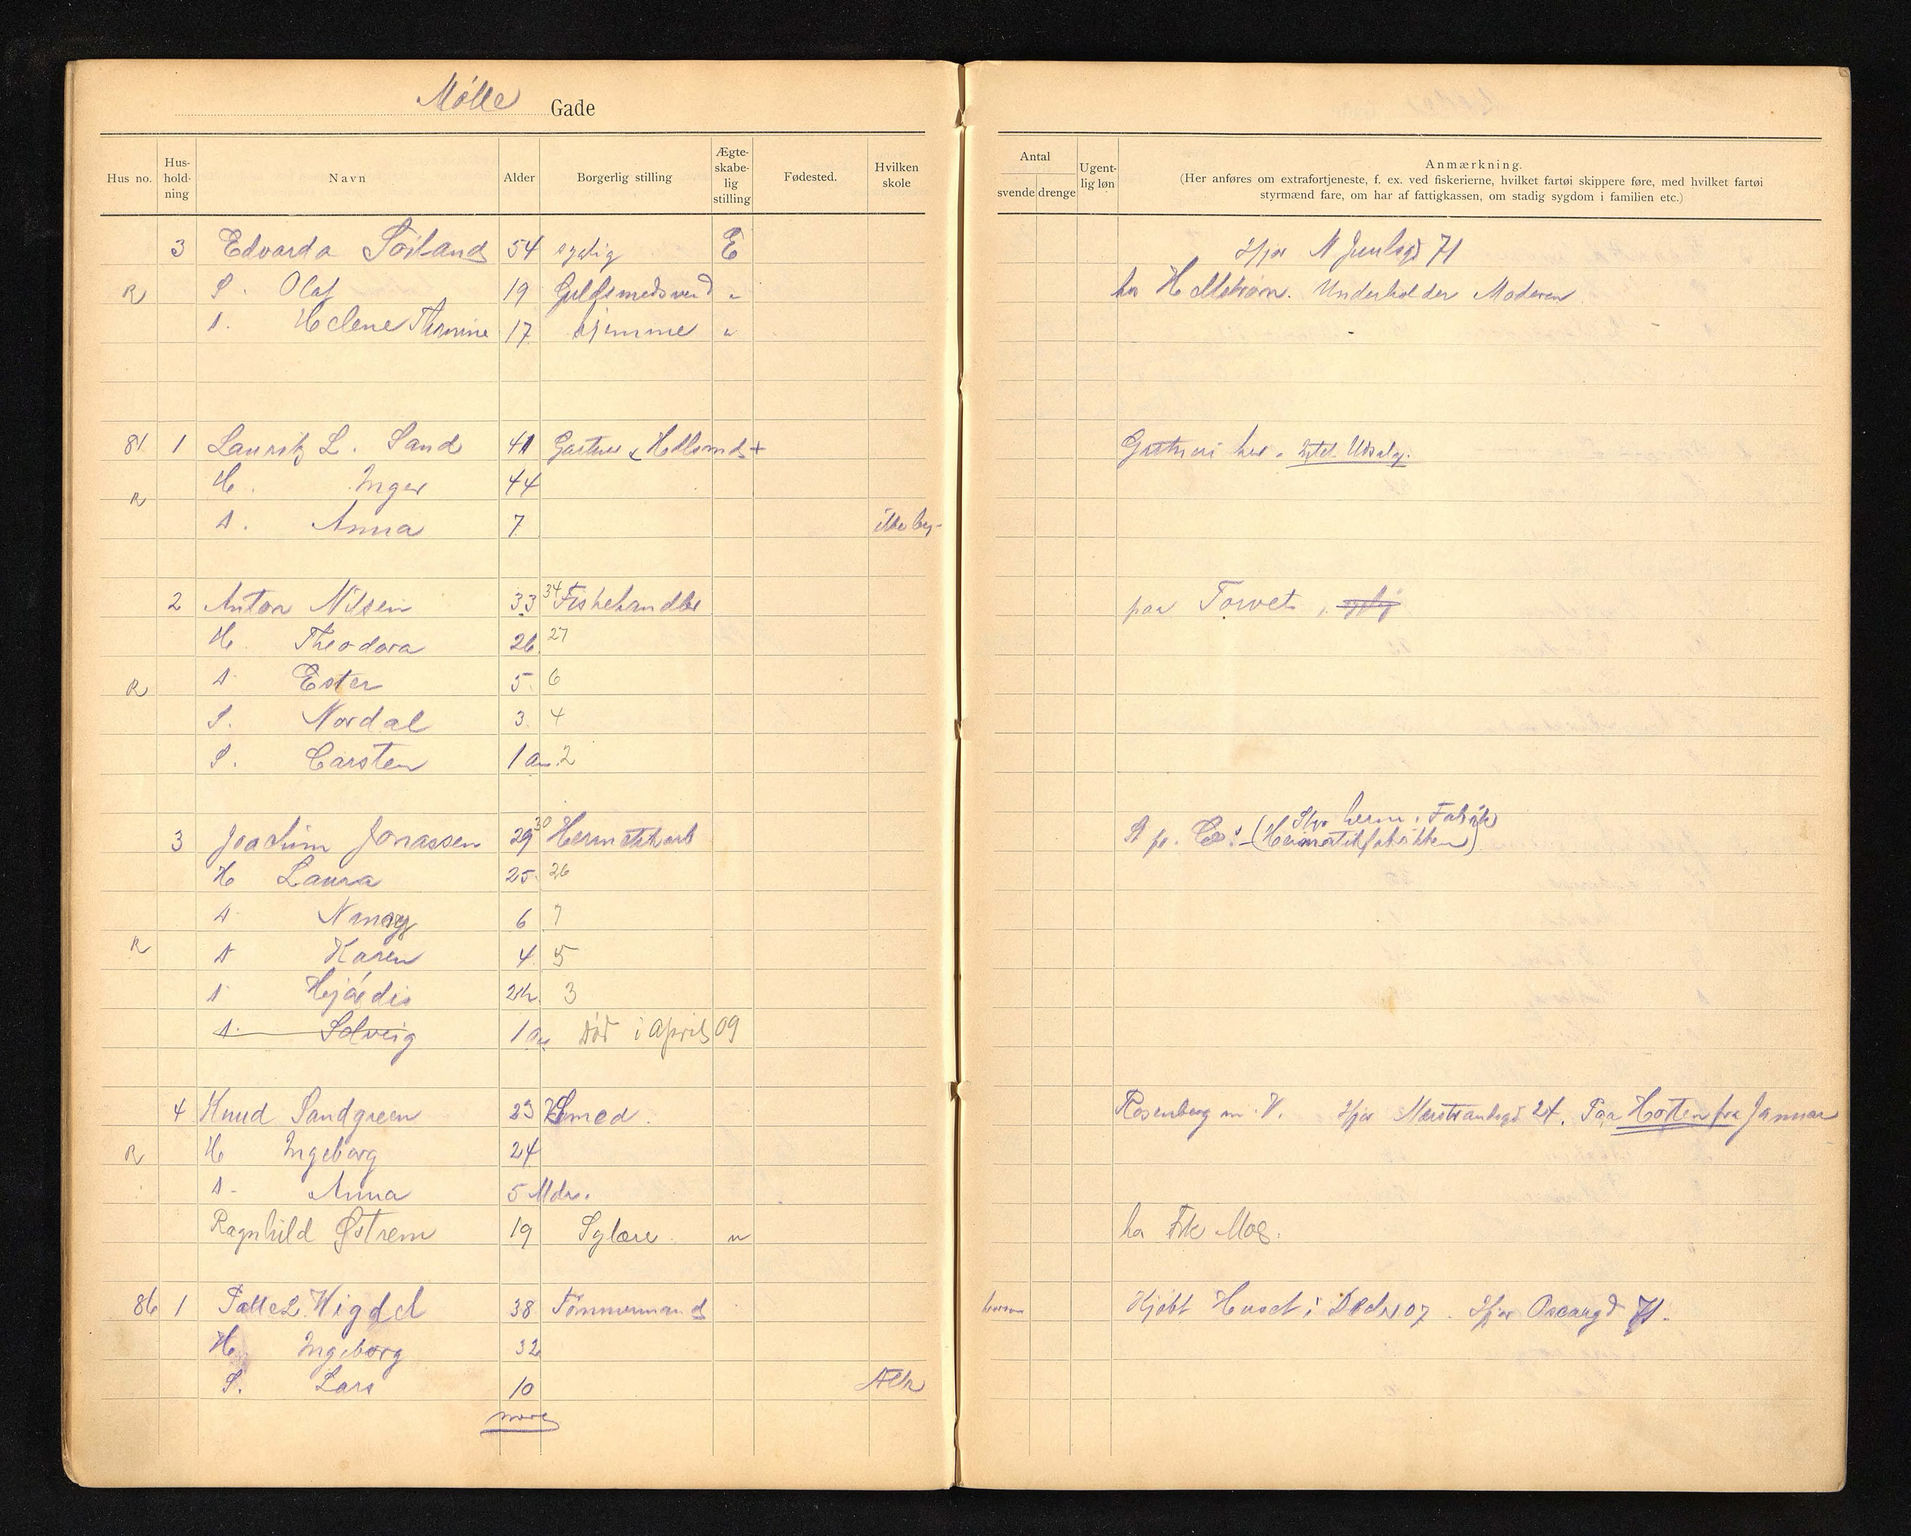 Mølle Gade
Hus no. Hus-hold-ning Navn Alder Borgerlig stilling Ægte-skabe-lig stilling Fødested. Hvilken skole
Antal svende drenge Ugent-lig løn Anmærkning.
(Her anføres om extrafortjeneste, f. ex. ved fiskerierne, hvilket fartøi skippere føre, med hvilket fartøi
styrmænd fare, om har af fattigkassen, om stadig sygdom i familien etc.)
3 Edvarda Soiland 54 sygelig E Ifjor N Juulsgd 71
R S. Olaf 19 Guldsmedsvend " hos Hellstrøm. Underholder Moderen
D. Helene Thomine 17 hjemme "
81 1 Lauritz L. Sand 41 Gartner & + Gartneri her. Udsalg.
R H. Inger 44
D. Anna 7 ikke beg-
2 Anton Nilsen 33 34 Fiskehandler paa Torvet, sygelig
H. Theodora 26 27
R D Ester 5 6
S. Nordal 3 4
S. Carsten 1 aar 2
3 Joachim Jonassen 29 30 Hermetikarb St. pr. Co: (Hermetikfabrikken)
H Laura 25 26
D Nancy 6 7
R D Karen 4 5
D Hjørdis 2½ 3
D. Solveig 1 aar Død i April 09
4 Knud Sandgreen 23 Smed. Rosenberg m. V. Ifjor Nærstrandsgd 24. Paa Horten fra Januar
R H Ingeborg 24
D. Anna 5 Mdr.
Ragnhild Østrem 19 Sylære. " hos Frk Moe.
86 1 L. Wigdel 38 Tømmermand Kjøbt Huset i Decbr 07. Ifjor Oscarsgd 71.
H. Ingeborg 32
S. Lars 10